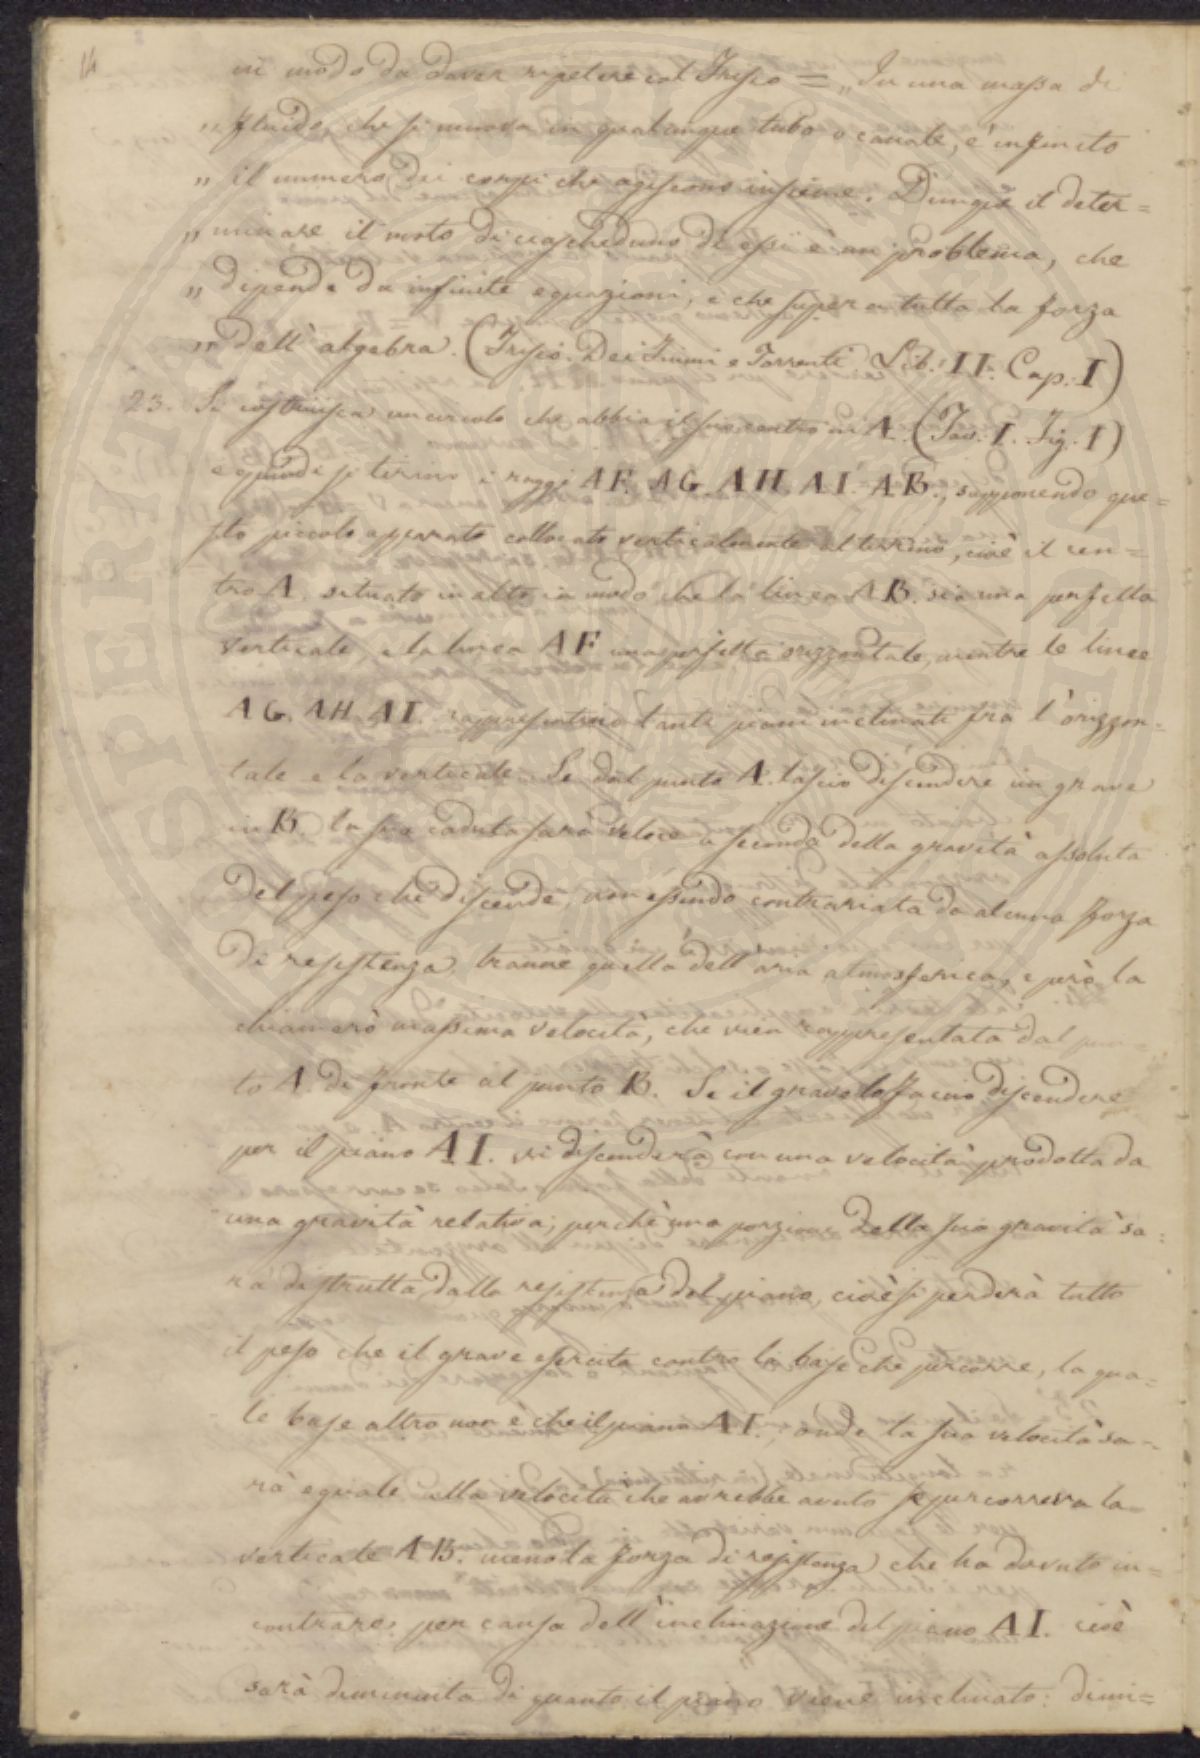 14
in modo da dover ripetere col Frisio = „ In una massa di
„ fluido, che si muova in qualunque tubo o canale, è infinito
„ il numero dei corpi che agiscono insieme. Dunque il deter=
„ minare il moto di ciascheduno di essi è un problema, che
„ dipende da infinite equazioni, e che supera tutta la forza
„ dell'algebra. (Frisio. Dei Fiumi e Torrenti Lib: II: Cap: I)
23. Si costruisca un circolo che abbia il suo centro in A. (Tav: I. Fig. 1)
e quindi si tirino i raggi AF. AG. AH. AI. AB., supponendo que=
sto piccolo apparato collocato verticalmente al terreno, cioè il cen=
tro A. situato in alto in modo che la linea AB. sia una perfetta
verticale e la linea AF una perfetta orizzontale, mentre le linee
AG. AH. AI. rappresentino tanti piani inclinati fra l'orizzon=
tale e la verticale. Se dal punto A. lascio discendere un grave
in B. la sua caduta sarà veloce a seconda della gravità assoluta
del peso che discende, non essendo contrariata da alcuna forza
di resistenza, tranne quella dell'aria atmosferica, e però la
chiamerò massima velocità, che vien rappresentata dal pun=
to A. di fronte al punto B. Se il grave lo faccio discendere
per il piano AI. vi discenderà con una velocità prodotta da
una gravità relativa; perchè una porzione della sua gravità sa=
rà distrutta dalla resistenza del piano, cioè si perderà tutto
il peso che il grave esercita contro la base che percorre, la qua=
le base altro non è che il piano AI.; onde la sua velocità sa=
rà eguale alla velocità che avrebbe avuto se percorreva la
verticale AB. meno la forza di resistenza che ha dovuto in=
contrare per causa dell'inclinazione del piano AI. cioè
sarà diminuita di quanto il piano viene inclinato: dimi=